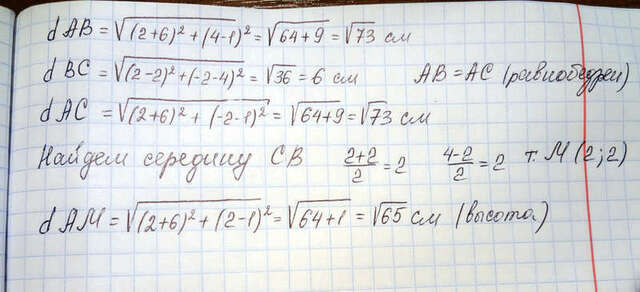 d AB = √(2+6)² + (4-1)² = √64+9 = √73 см
d BC = √(2-2)² + (-2-4)² = √36 = 6 см AB = AC (равнобедрен)
d AC = √(2+6)² + (-2-1)² = √64+9 = √73 см
Найдем середину CB (2+2)/2 = 2 (4-2)/2 = 2 т. M (2; 2)
d AM = √(2+6)² + (2-1)² = √64+1 = √65 см (высота)